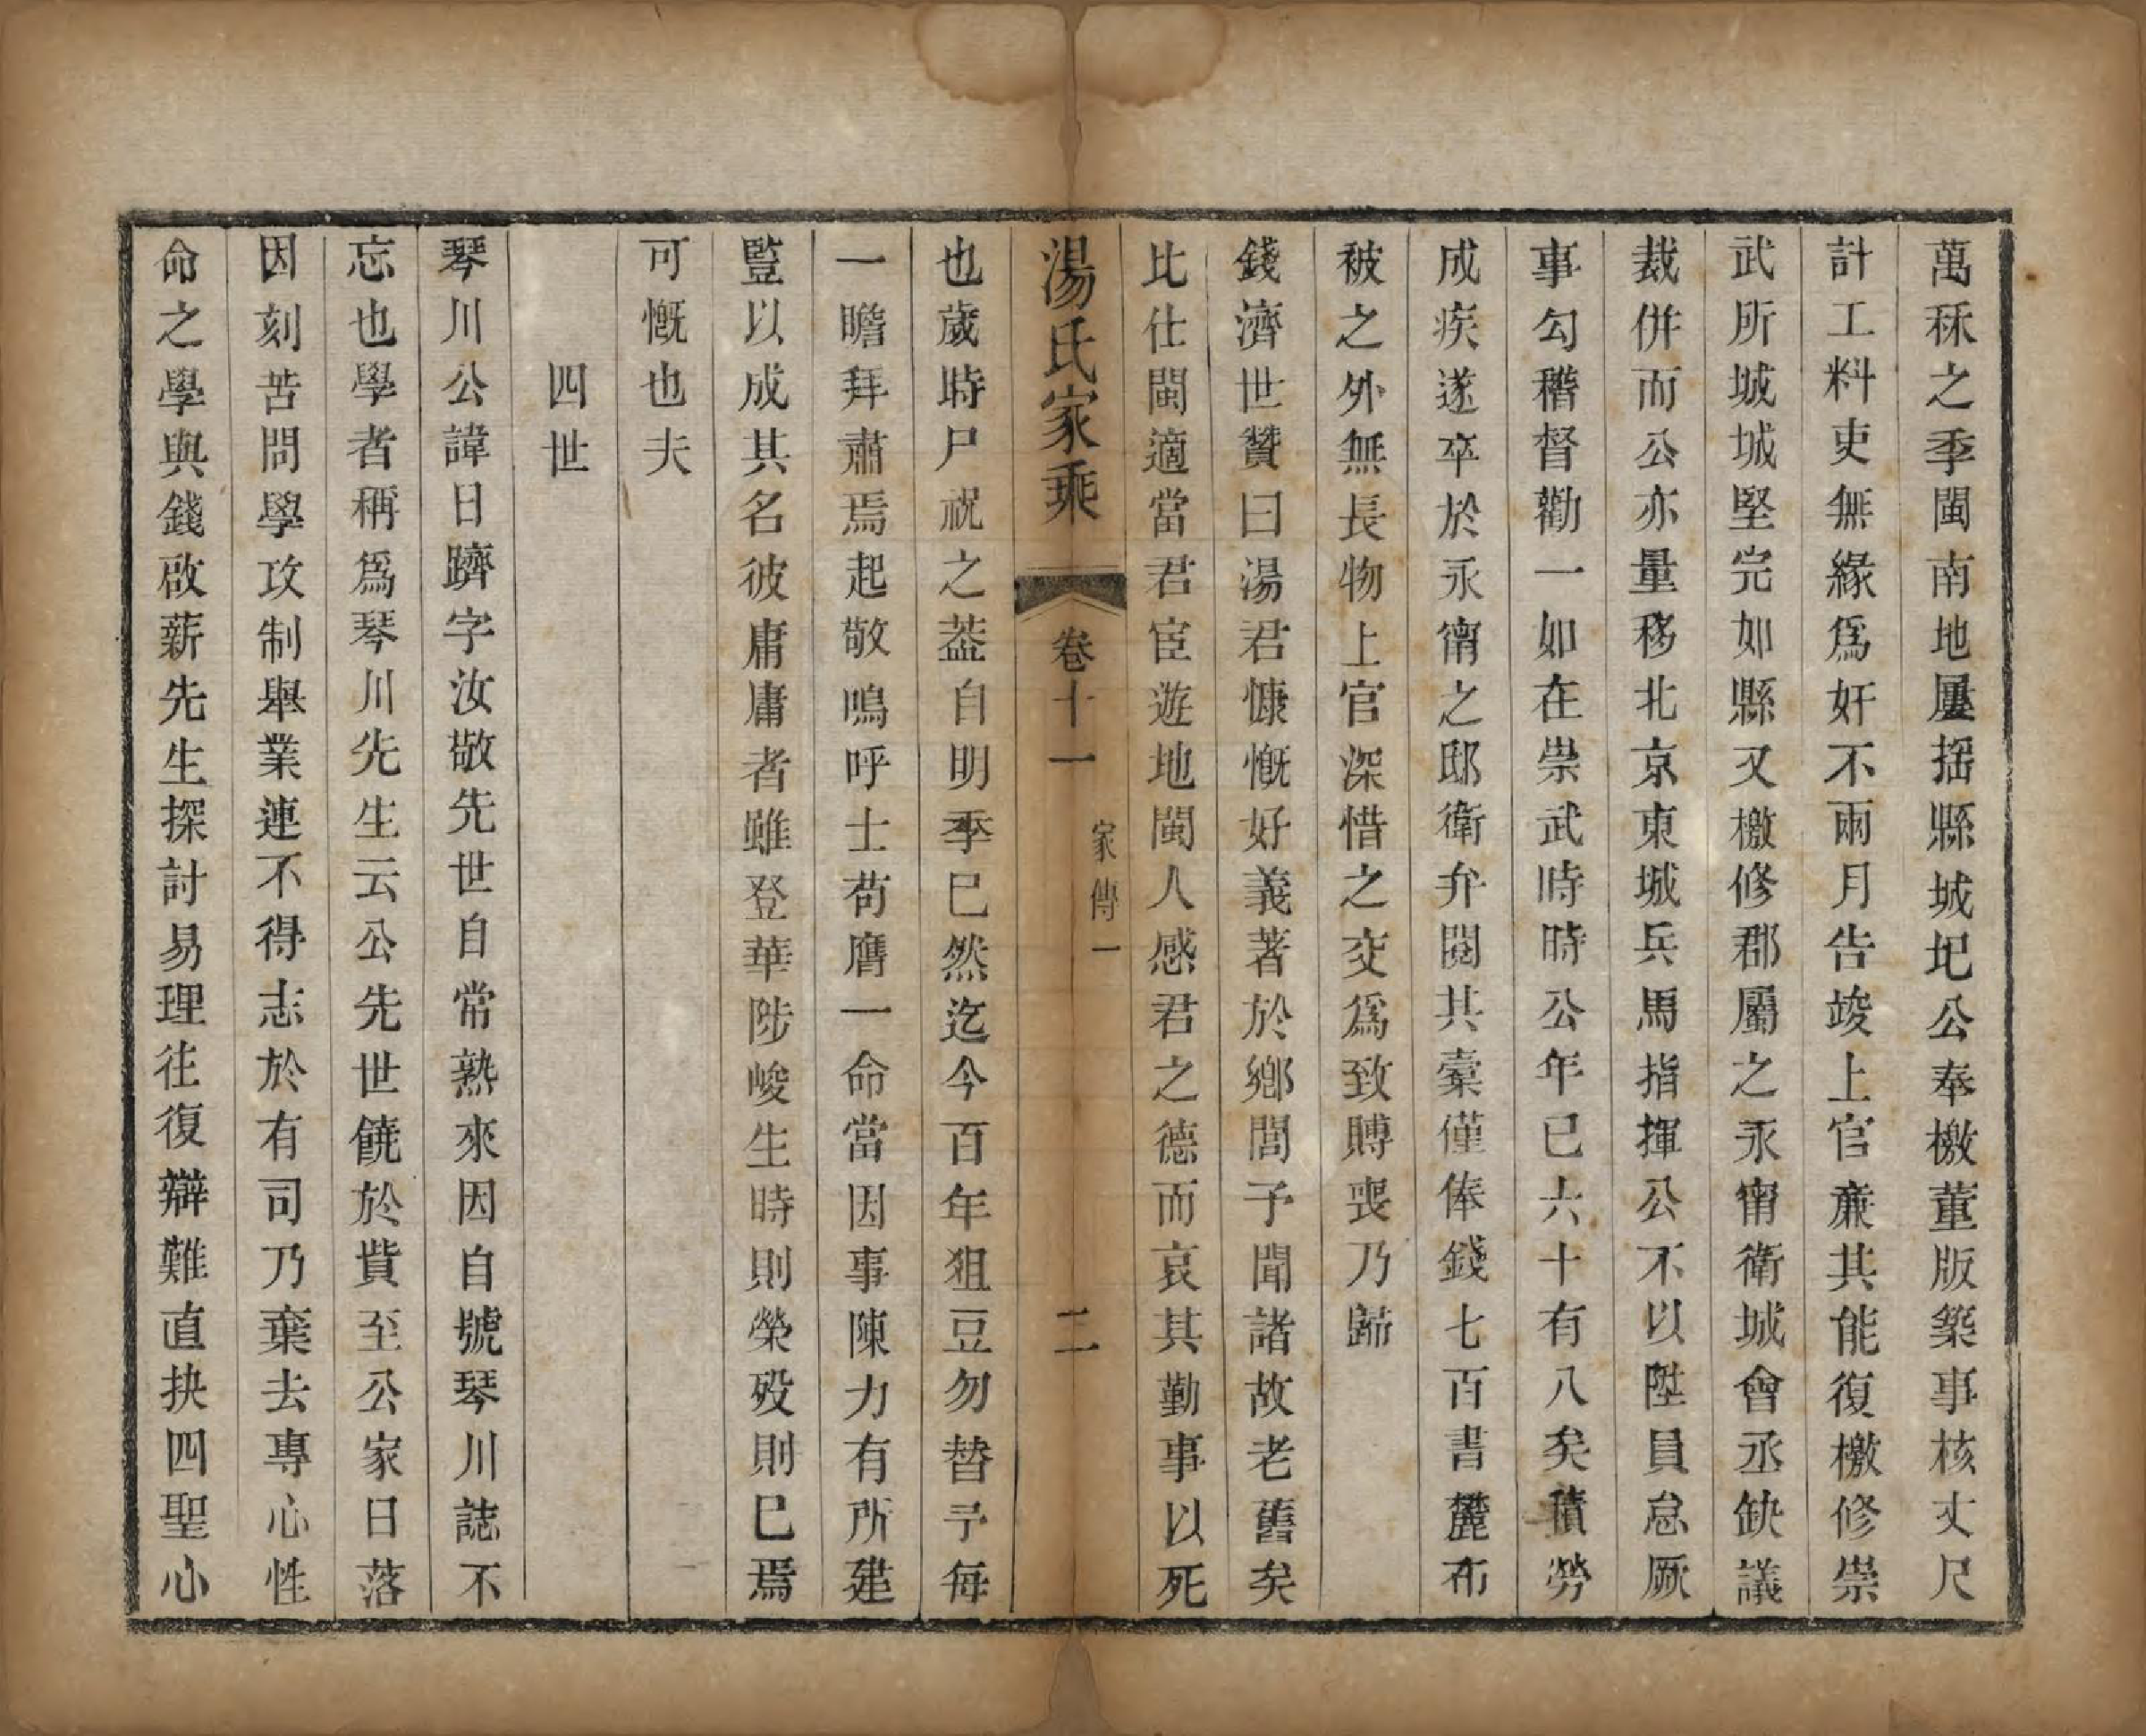 萬秝之季閩南地屢揺縣城圮公奉檄董版築事核丈尺
計工料吏無緣爲奸不兩月告竣上官亷其能復檄修崇
武所城城堅完如縣又檄修郡屬之永甯衛城會丞缺議
裁併而公亦量移北京東城兵馬指揮公不以陞員怠厥
事勾稽督勸一如在崇武時時公年已六十有八矣積勞
成疾遂卒於永甯之邸衛弁閱其橐僅俸錢七百書麓布
被之外無長物上官深惜之交爲致賻喪乃歸
錢濟世贊曰湯君慷慨好義著於鄉閭予聞諸故老舊矣
比仕閩適當君宦遊地閩人感君之德而哀其勤事以死
湯氏家乘
卷十一
家傳一
二
也歲時尸祝之葢自明季已然迄今百年狙豆勿替予每
一瞻拜肅焉起敬嗚呼士苟膺一命當因事陳力有所建
豎以成其名彼庸庸者雖登華陟峻生時則榮歿則已焉
可慨也夫
四世
琴川公諱日躋字汝敬先世自常熟來因自號琴川誌不
忘也學者稱爲琴川先生云公先世饒於貲至公家日落
因刻苦問學攻制舉業連不得志於有司乃棄去專心性
命之學與錢啟薪先生探討易理往復辯難直抉四聖心